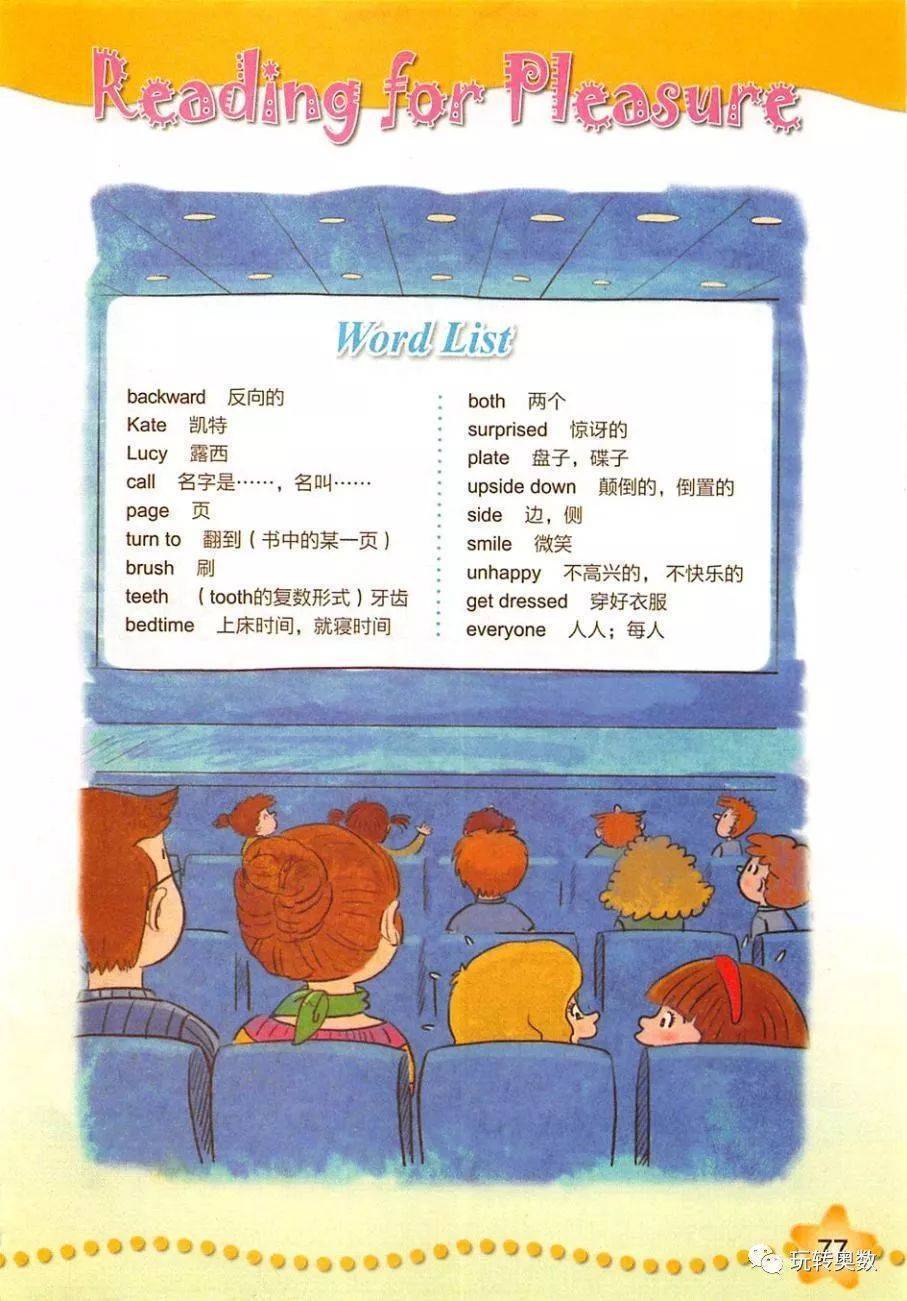 Reading for Pleasure
Word List
backward 反向的
Kate 凯特
Lucy 露西
call 名字是……，名叫……
page 页
turn to 翻到（书中的某一页）
brush 刷
teeth （tooth的复数形式）牙齿
bedtime 上床时间，就寝时间
both 两个
surprised 惊讶的
plate 盘子，碟子
upside down 颠倒的，倒置的
side 边，侧
smile 微笑
unhappy 不高兴的， 不快乐的
get dressed 穿好衣服
everyone 人人；每人
77
玩转奥数